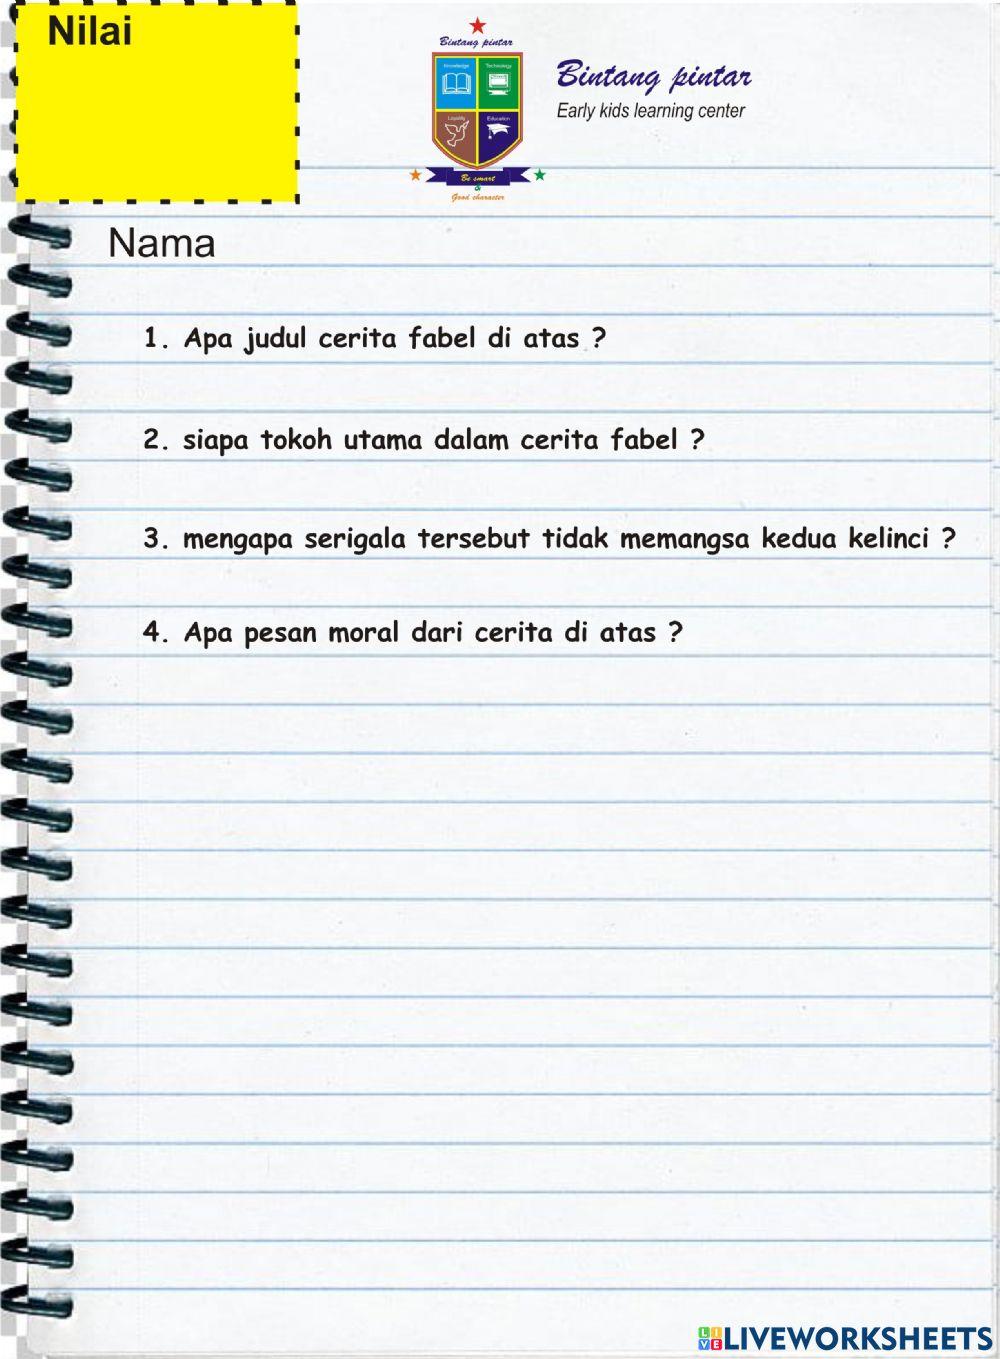 Nilai
Bintang pintar
Knowledge
Technology
Loyality
Education
Be smart
&
Good character
Bintang pintar
Early kids learning center
Nama
1. Apa judul cerita fabel di atas ?
2. siapa tokoh utama dalam cerita fabel ?
3. mengapa serigala tersebut tidak memangsa kedua kelinci ?
4. Apa pesan moral dari cerita di atas ?
LIVEWORKSHEETS